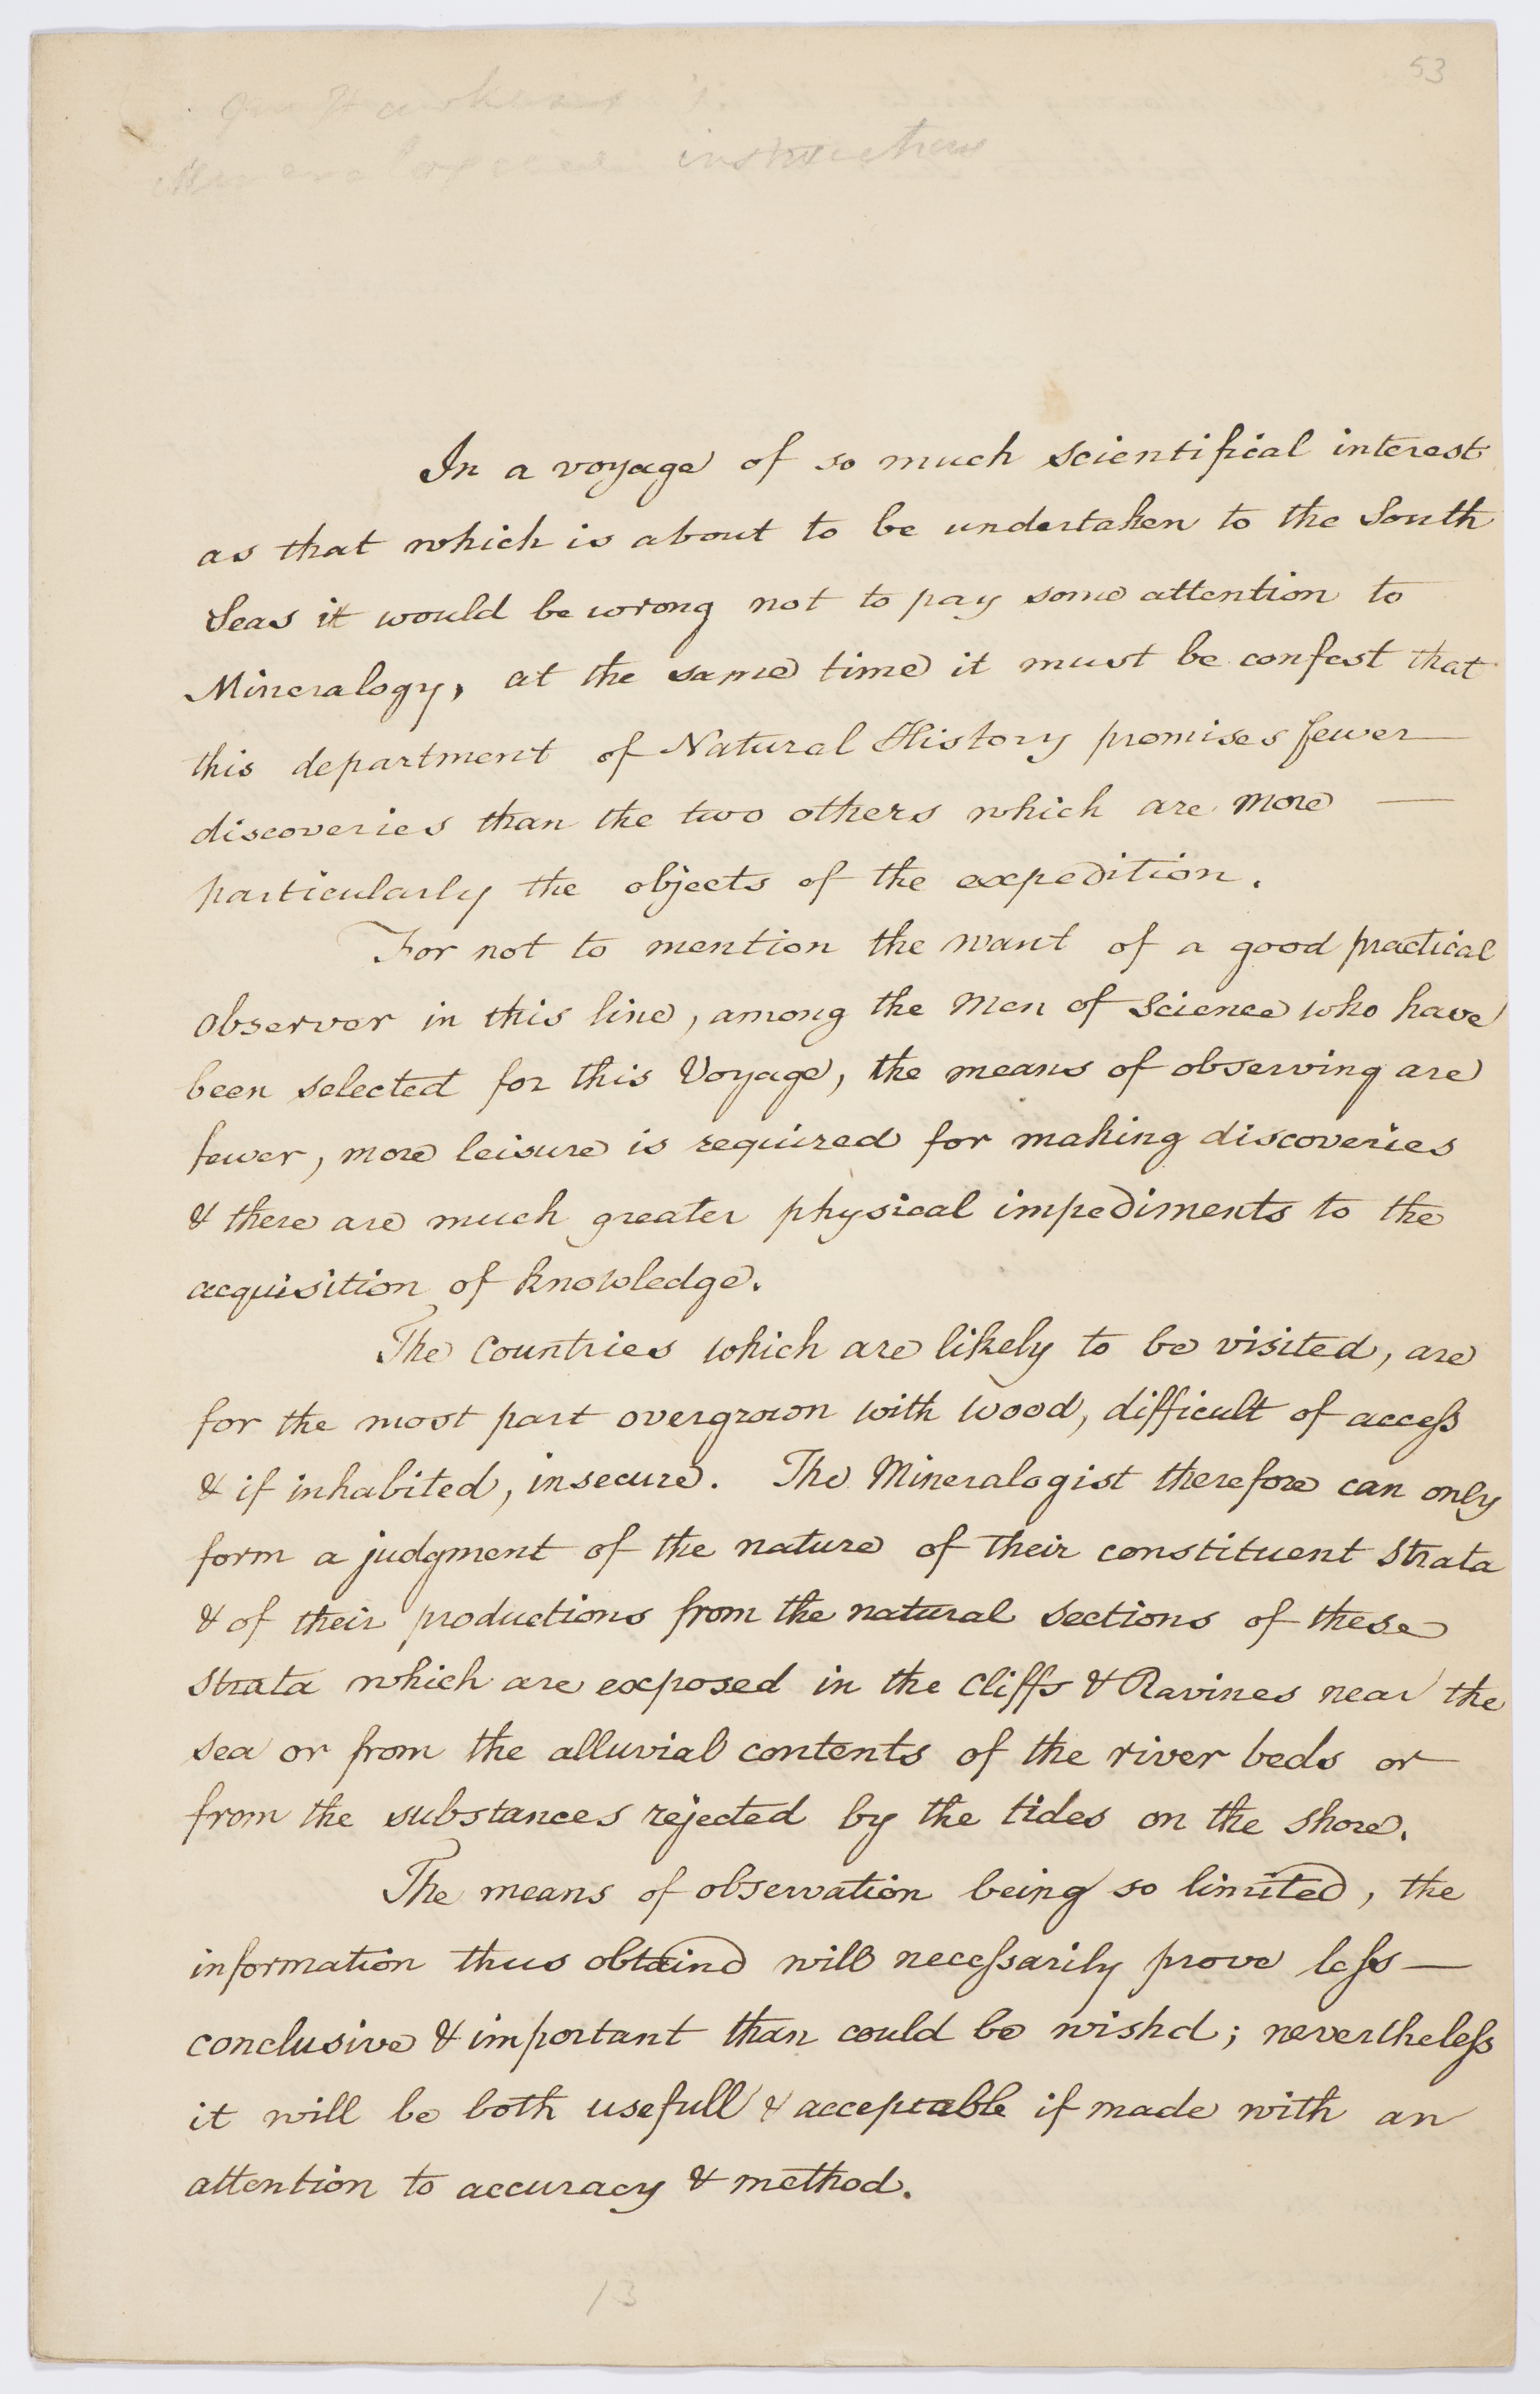 53
instructions
In a voyage of so much scientifical interest
as that which is about to be undertaken to the South
Seas it would be wrong not to pay some attention to
Mineralogy, at the same time it must be confest that
this department of Natural History promises fewer —
discoveries than the two others which are more —
particularly the objects of the expedition.
For not to mention the want of a good practical
Observer in this line, among the Men of Science who have
been selected for this Voyage, the means of observing are
fewer, more leisure is required for making discoveries
& there are much greater physical impediments to the
acquisition of knowledge.
The Countries which are likely to be visited, are
for the most part overgrown with wood, difficult of access
& if inhabited, insecure. The Mineralogist therefore can only
form a judgment of the nature of their constituent Strata
& of their productions from the natural sections of these
Strata which are exposed in the Cliffs & Ravines near the
sea or from the alluvial contents of the river beds or
from the substances rejected by the tides on the shore.
The means of observation being so limited, the
information thus obtaind will necessarily prove less —
conclusive & important than could be wishd; nevertheless
it will be both usefull & acceptable if made with an
attention to accuracy & method.
13